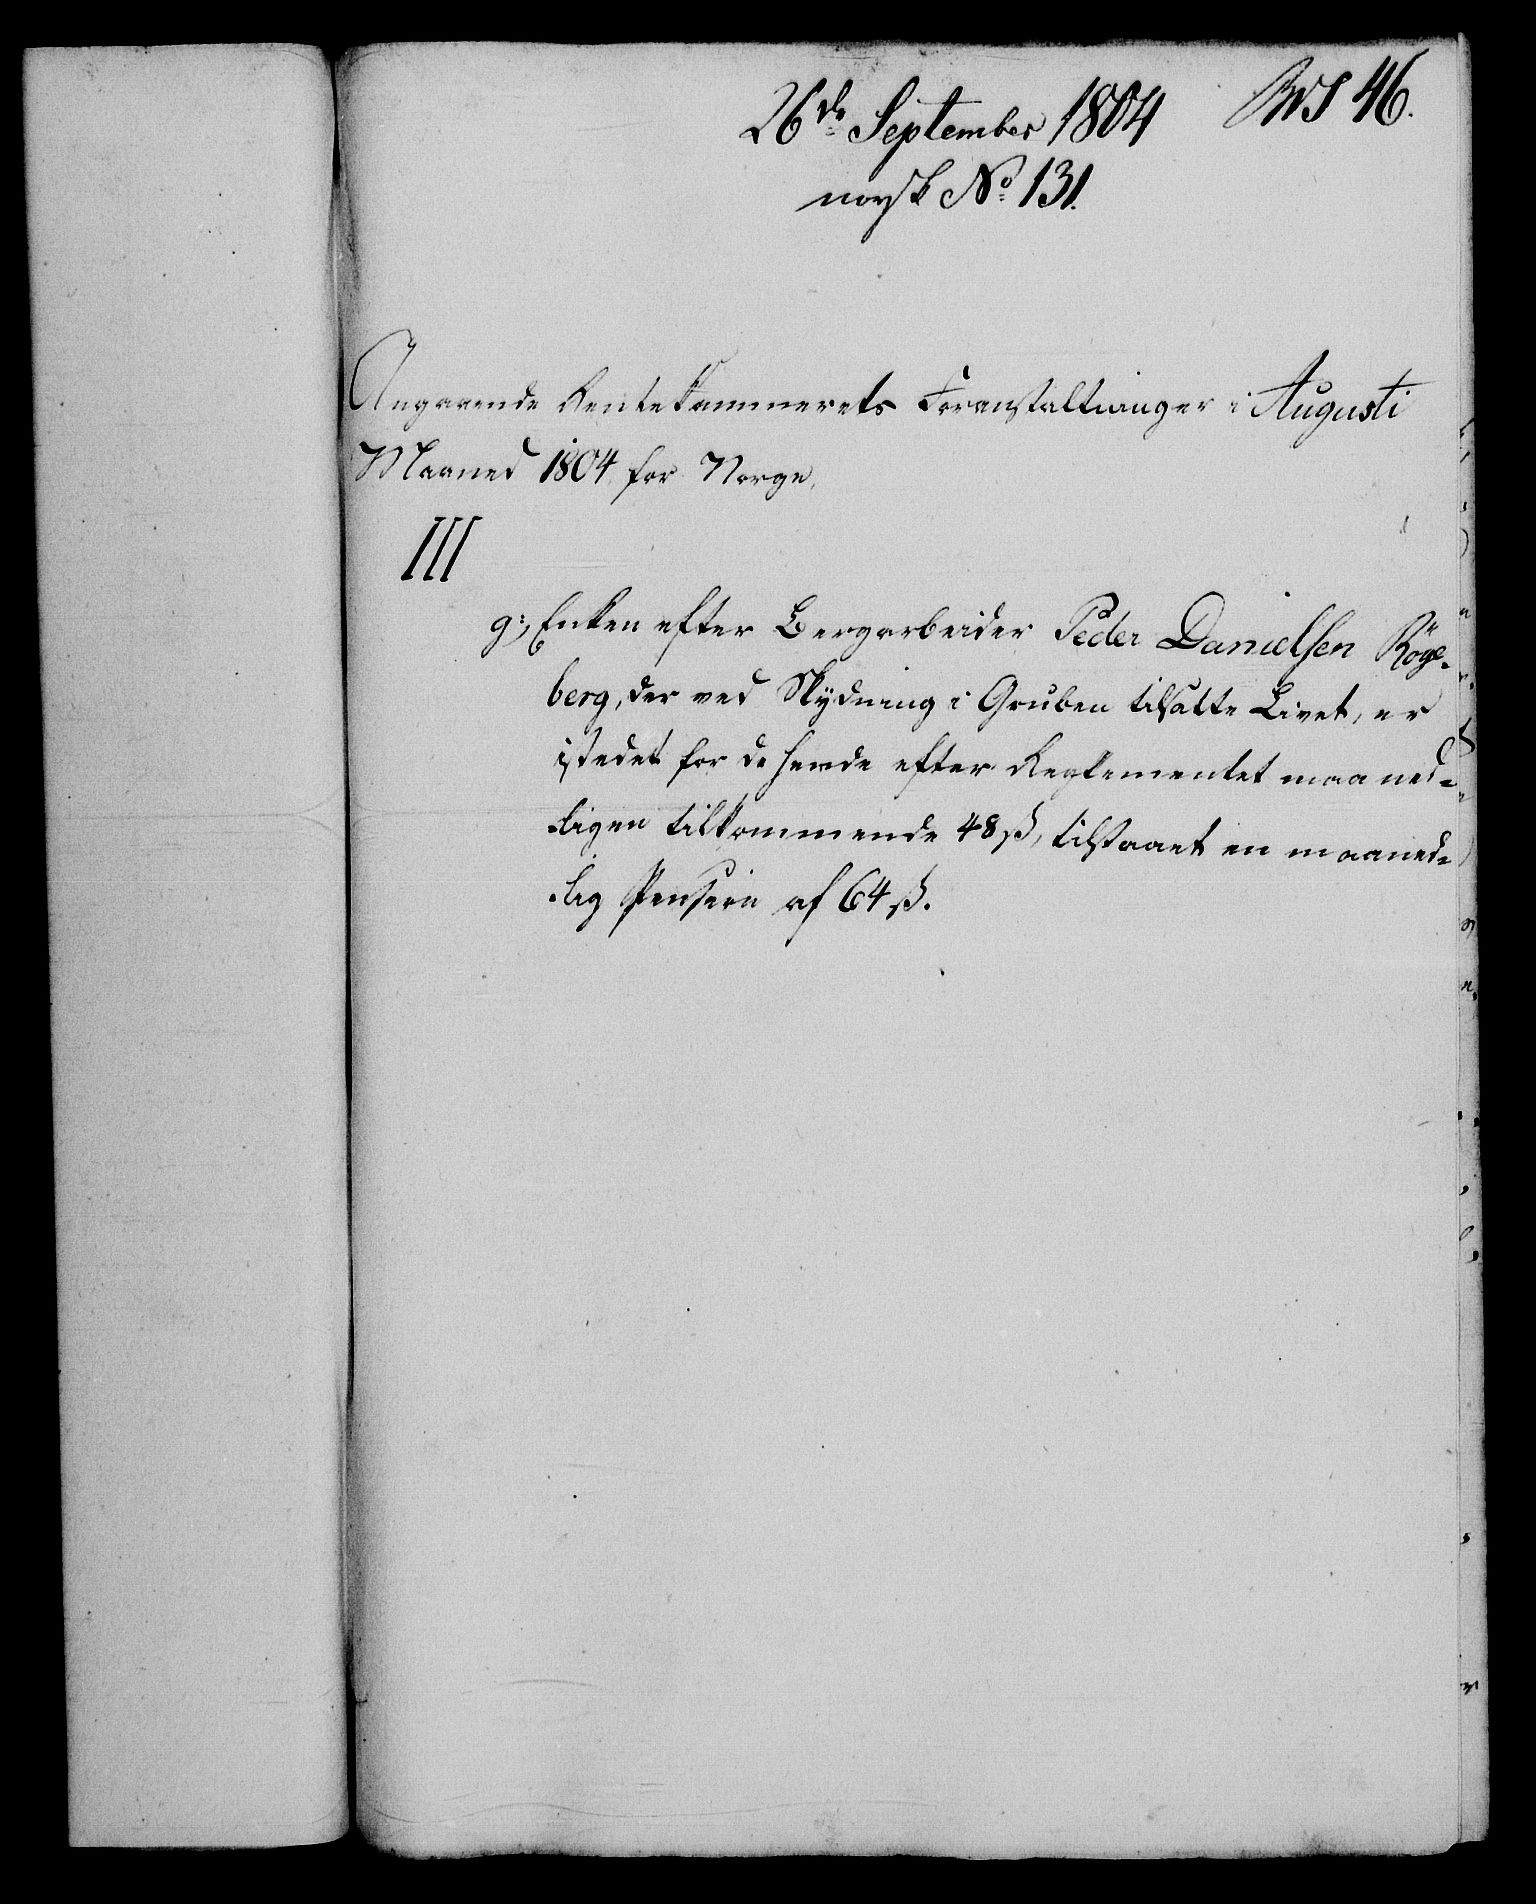 26de September 1804
46.
norsk No 131.
Angaaende Rentekammerets Foranstaltninger i Augusti
Maaned 1804 for Norge.
III
g:, Enken efter Bergarbeider Peder Danielsen Röge-
berg, der ved Skydning i Gruben tilsatte Livet, er
istedet for de hende efter Reglementet maaned=
ligen tilkommende 48 ß, tilstaaet en maaned=
lig Pension af 64 ß.